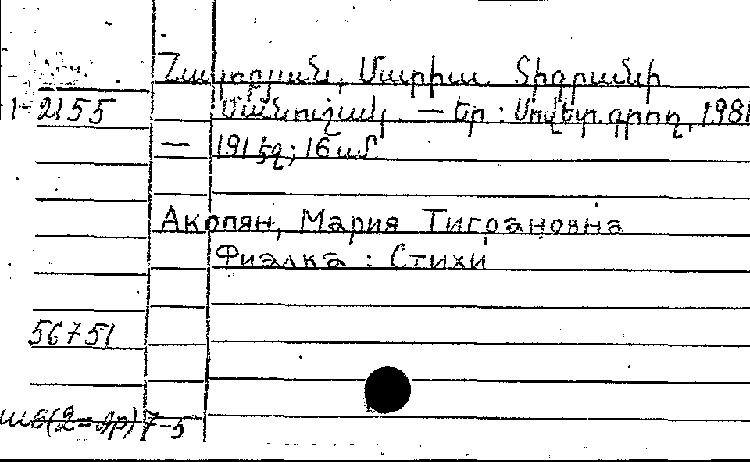 Հակոբյան, Մարիա Տիգրանի
1-2155
Մանուշակ. — Եր : Սովետ. գրող, 1981
— 191 էջ; 16 սմ
Акопян, Мария Тиграновна
Фиалка : Стихи
56751
(2=Հր) 7-5